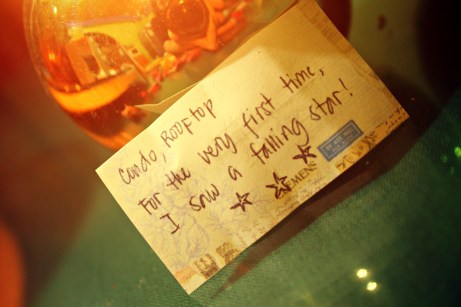 Condo, Rooftop
For the very first time,
I saw a falling star!